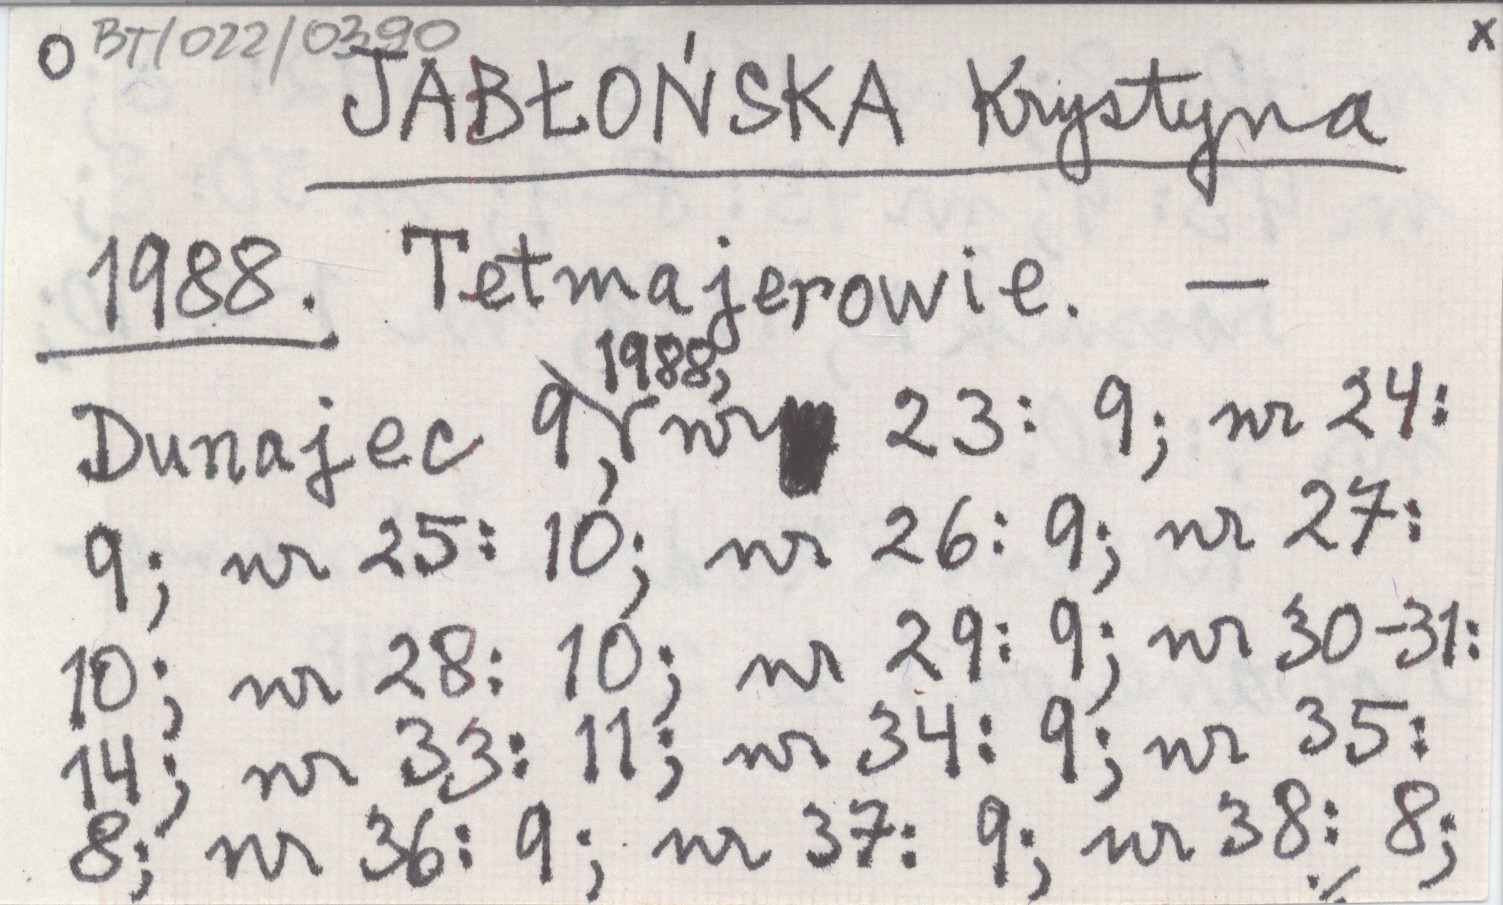 O BT/022/0390 x
JABŁOŃSKA Krystyna
1988. Tetmajerowie. —
1988,
Dunajec 9, nr 23: 9; nr 24:
9; nr 25: 10; nr 26: 9; nr 27:
10; nr 28: 10; nr 29: 9; nr 30-31:
14; nr 33: 11; nr 34: 9; nr 35:
8; nr 36: 9; nr 37: 9; nr 38: 8;
./.